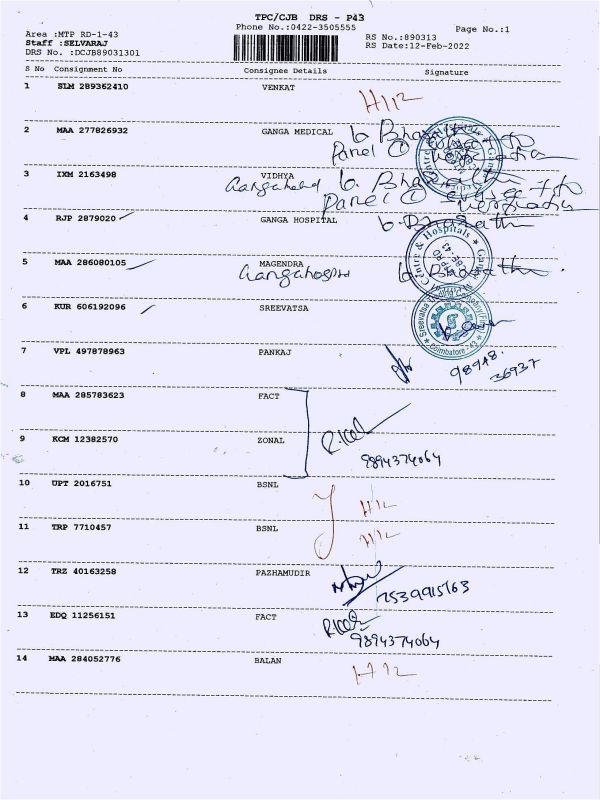 TPC/CJB DRS - P43
Phone No.:0422-3505555
Page No.:1
Area :MTP RD-1-43
RS No.:890313
Staff :SELVARAJ
RS Date:12-Feb-2022
DRS No. :DCJB89031301
S No Consignment No Consignee Details Signature
1 SLM 289362410 VENKAT
H12
2 MAA 277826932 GANGA MEDICAL b. Bharath
Panel ©
3 IXM 2163498 VIDHYA b. Bharath
Panel ©
4 RJP 2879020 GANGA HOSPITAL b. Bharath
Centre & Hospitals
5 MAA 286080105 MAGENDRA
Gangahospital b. Bharath.
6 KUR 606192096 SREEVATSA
Coimbatore - 43
7 VPL 497878963 PANKAJ
98948.
36937
8 MAA 285783623 FACT
9 KCM 12382570 ZONAL
9894374064
10 UPT 2016751 BSNL
H12
11 TRP 7710457 BSNL
H12
12 TRZ 40163258 PAZHAMUDIR
7539915763
13 EDQ 11256151 FACT
9894374064
14 MAA 284052776 BALAN
H12